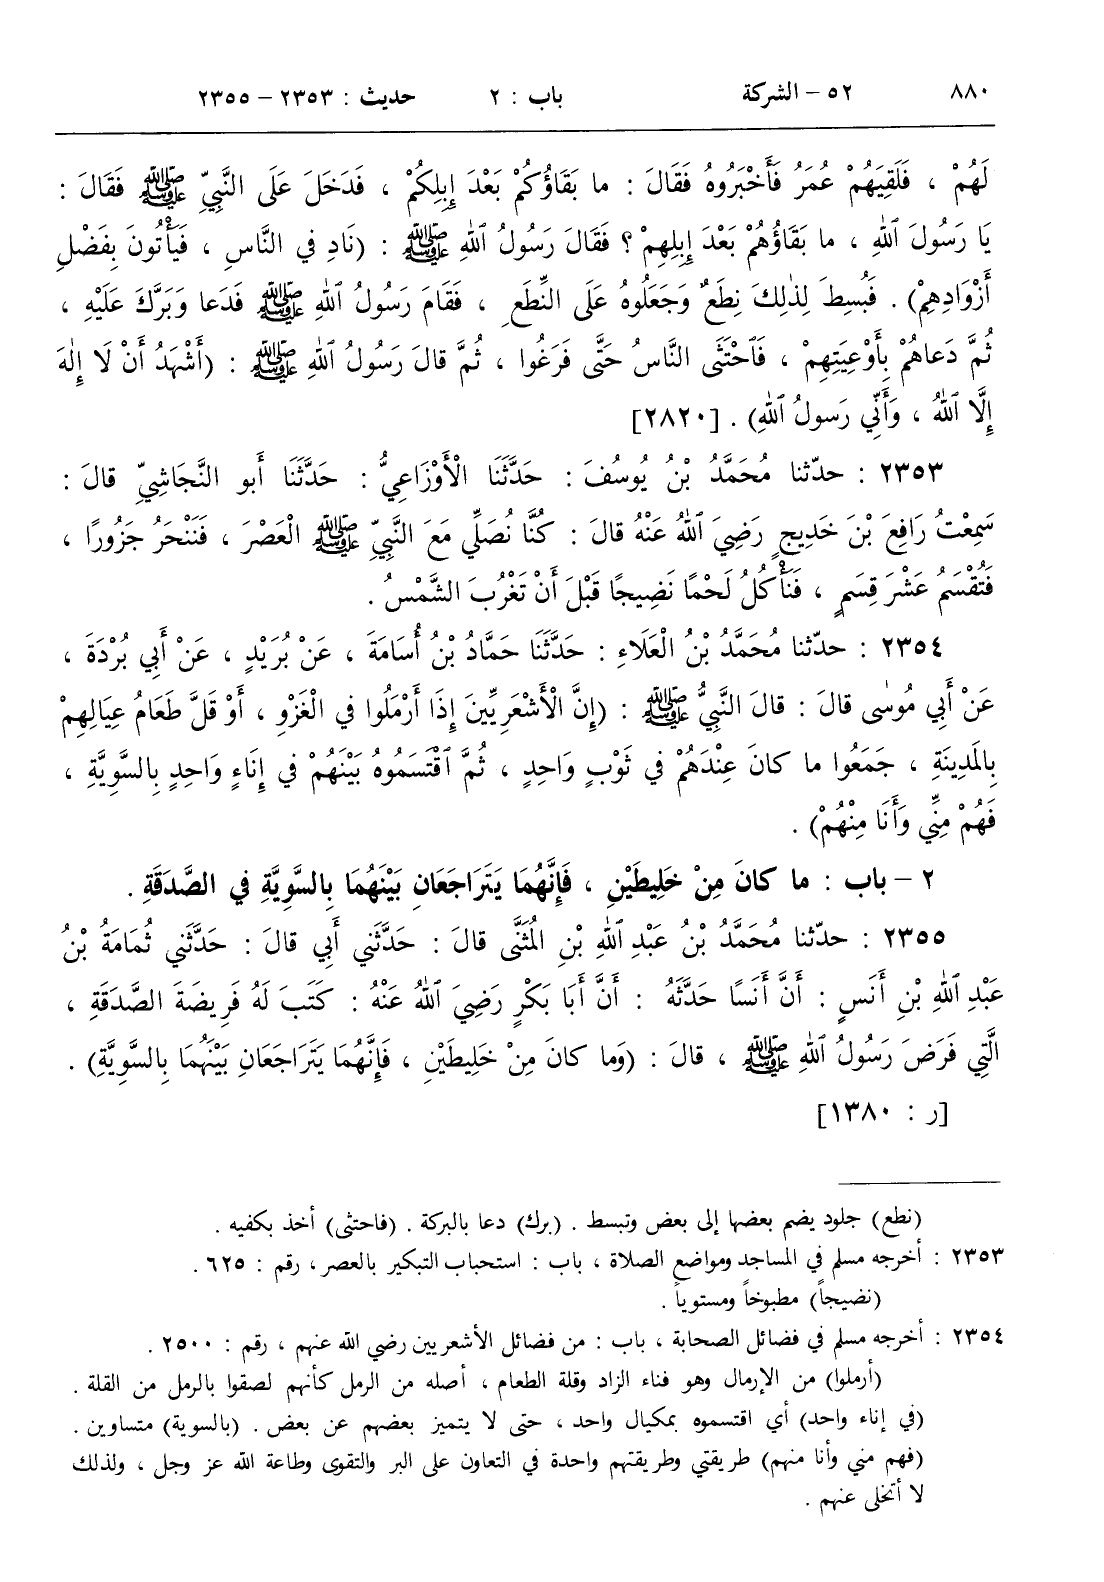 ٨٨٠ ٥٢ – الشركة باب : ٢ حديث : ٢٣٥٣ – ٢٣٥٥
لَهُمْ ، فَلَقِيَهُمْ عُمَرُ فَأَخْبَرُوهُ فَقَالَ : ما بَقَاؤُكمْ بَعْدَ إِبِلِكُمْ ، فَدَخَلَ عَلَى النَّبِيِّ ﷺ فَقَالَ :
يَا رَسُولَ ٱللهِ ، ما بَقَاؤُهُمْ بَعْدَ إِبِلِهِمْ ؟ فَقَالَ رَسُولُ ٱللهِ ﷺ : (نَادِ في النَّاسِ ، فَيَأْتُونَ بِفَضْلِ
أَزْوَادِهِمْ) . فَبُسِطَ لِذٰلِكَ نِطَعٌ وَجَعَلُوهُ عَلَى النِّطَعِ ، فَقَامَ رَسُولُ ٱللهِ ﷺ فَدَعا وَبَرَّكَ عَلَيْهِ ،
ثُمَّ دَعاهُمْ بِأَوْعِيَتِهِمْ ، فَٱحْتَثَى النَّاسُ حَتَّى فَرَغُوا ، ثُمَّ قالَ رَسُولُ ٱللهِ ﷺ : (أَشْهَدُ أَنْ لَا إِلٰهَ
إِلَّا ٱللهُ ، وَأَنِّي رَسولُ ٱللهِ) . [٢٨٢٠]
٢٣٥٣ : حدّثنا مُحَمَّدُ بْنُ يُوسُفَ : حَدَّثَنَا الْأَوْزَاعِيُّ : حَدَّثَنَا أَبو النَّجَاشِيِّ قالَ :
سَمِعْتُ رَافِعَ بْنَ خَدِيجٍ رَضِيَ ٱللهُ عَنْهُ قالَ : كُنَّا نُصَلِّي مَعَ النَّبِيِّ ﷺ الْعَصْرَ ، فَنَنْحَرُ جَزُورًا ،
فَتُقْسَمُ عَشْرَ قِسَمٍ ، فَنَأْكُلُ لَحْمًا نَضِيجًا قَبْلَ أَنْ تَغْرُبَ الشَّمْسُ .
٢٣٥٤ : حدّثنا مُحَمَّدُ بْنُ الْعَلَاءِ : حَدَّثَنَا حَمَّادُ بْنُ أُسَامَةَ ، عَنْ بُرَيْدٍ ، عَنْ أَبِي بُرْدَةَ ،
عَنْ أَبِي مُوسٰى قالَ : قالَ النَّبِيُّ ﷺ : (إِنَّ الْأَشْعَرِيِّينَ إِذَا أَرْمَلُوا في الْغَزْوِ ، أَوْ قَلَّ طَعَامُ عِيَالِهِمْ
بِالمَدِينَةِ ، جَمَعُوا ما كانَ عِنْدَهُمْ في ثَوْبٍ وَاحِدٍ ، ثُمَّ ٱقْتَسَمُوهُ بَيْنَهُمْ في إِنَاءٍ وَاحِدٍ بِالسَّوِيَّةِ ،
فَهُمْ مِنِّي وَأَنَا مِنْهُمْ) .
٢ – باب : ما كانَ مِنْ خَلِيطَيْنِ ، فَإِنَّهُمَا يَتَرَاجَعَانِ بَيْنَهُمَا بِالسَّوِيَّةِ في الصَّدَقَةِ .
٢٣٥٥ : حدّثنا مُحَمَّدُ بْنُ عَبْدِ ٱللهِ بْنِ المُثَنَّى قالَ : حَدَّثَنِي أَبِي قالَ : حَدَّثَنِي ثُمَامَةُ بْنُ
عَبْدِ ٱللهِ بْنِ أَنَسٍ : أَنَّ أَنَسًا حَدَّثَهُ : أَنَّ أَبَا بَكْرٍ رَضِيَ ٱللهُ عَنْهُ : كَتَبَ لَهُ فَرِيضَةَ الصَّدَقَةِ ،
الَّتِي فَرَضَ رَسُولُ ٱللهِ ﷺ ، قالَ : (وَما كانَ مِنْ خَلِيطَيْنِ ، فَإِنَّهُمَا يَتَرَاجَعَانِ بَيْنَهُمَا بِالسَّوِيَّةِ) .
[ر : ١٣٨٠]
(نطع) جلود يضم بعضها إلى بعض وتبسط . (برك) دعا بالبركة . (فاحتثى) أخذ بكفيه .
٢٣٥٣ : أخرجه مسلم في المساجد ومواضع الصلاة ، باب : استحباب التبكير بالعصر ، رقم : ٦٢٥ .
(نضيجاً) مطبوخاً ومستوياً .
٢٣٥٤ : أخرجه مسلم في فضائل الصحابة ، باب : من فضائل الأشعريين رضي الله عنهم ، رقم : ٢٥٠٠ .
(أرملوا) من الإرمال وهو فناء الزاد وقلة الطعام ، أصله من الرمل كأنهم لصقوا بالرمل من القلة .
(في إناء واحد) أي اقتسموه بمكيال واحد ، حتى لا يتميز بعضهم عن بعض . (بالسوية) متساوين .
(فهم مني وأنا منهم) طريقتي وطريقتهم واحدة في التعاون على البر والتقوى وطاعة الله عز وجل ، ولذلك
لا أتخلى عنهم .